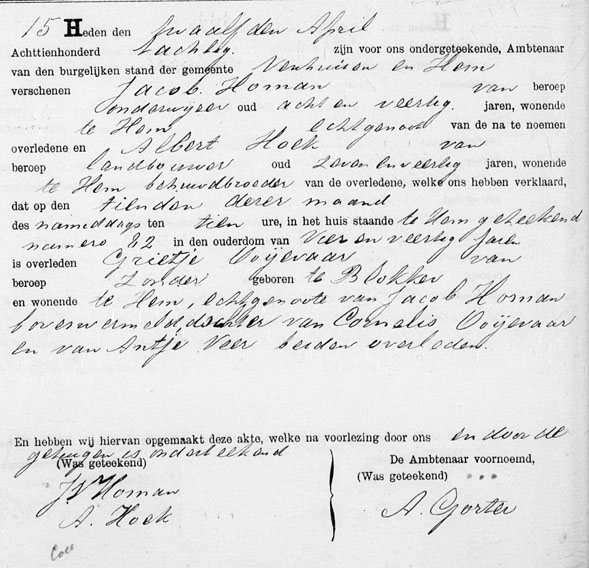 15 Heden den twaalfden April
Achttienhonderd tachtig. zijn voor ons ondergeteekende, Ambtenaar
van den burgelijken stand der gemeente Venhuisen en Hem
verschenen Jacob Homan van beroep
onderwijzer oud acht en veertig jaren, wonende
te Hem echtgenoot van de na te noemen
overledene en Albert Hoek van
beroep landbouwer oud zeven en veertig jaren, wonende
te Hem behuwdbroeder van de overledene, welke ons hebben verklaard,
dat op den tienden dezer maand
des nameddags ten tien ure, in het huis staande te Hem geteekend
numero 82 in den ouderdom van vier en veertig jaren
is overleden Grietje Ooijevaar van
beroep zonder geboren te Blokker
en wonende te Hem, echtgenoote van Jacob Homan
bovenvermeld, dochter van Cornelis Ooijevaar
en van Antje Veer beiden overleden.
En hebben wij hiervan opgemaakt deze akte, welke na voorlezing door ons en door de
getuigen is onderteekend
(Was geteekend)
De Ambtenaar voornoemd,
(Was geteekend)
Homan
A. Hoek
A. Gorter